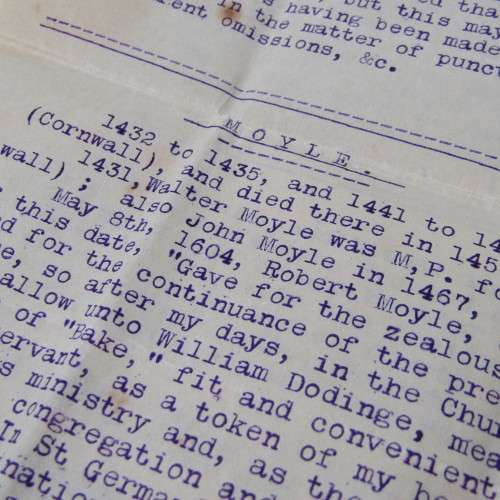 but this may
s having been made
in the matter of punct
ent omissions, &c.
MOYLE.
1432 to 1435, and 1441 to 14
(Cornwall), and died there in 145
1431, Walter Moyle was M.P. f
wall) ; also John Moyle in 1467,
May 8th, 1604, Robert Moyle,
this date, "Gave for the zealous
ed for the continuance of the pre
e, so after my days, in the Chur
allow unto William Dodinge, mea
of "Bake," fit and convenient
ervant, as a token of my b
s ministry and, as the
congregation and
In St German
natio